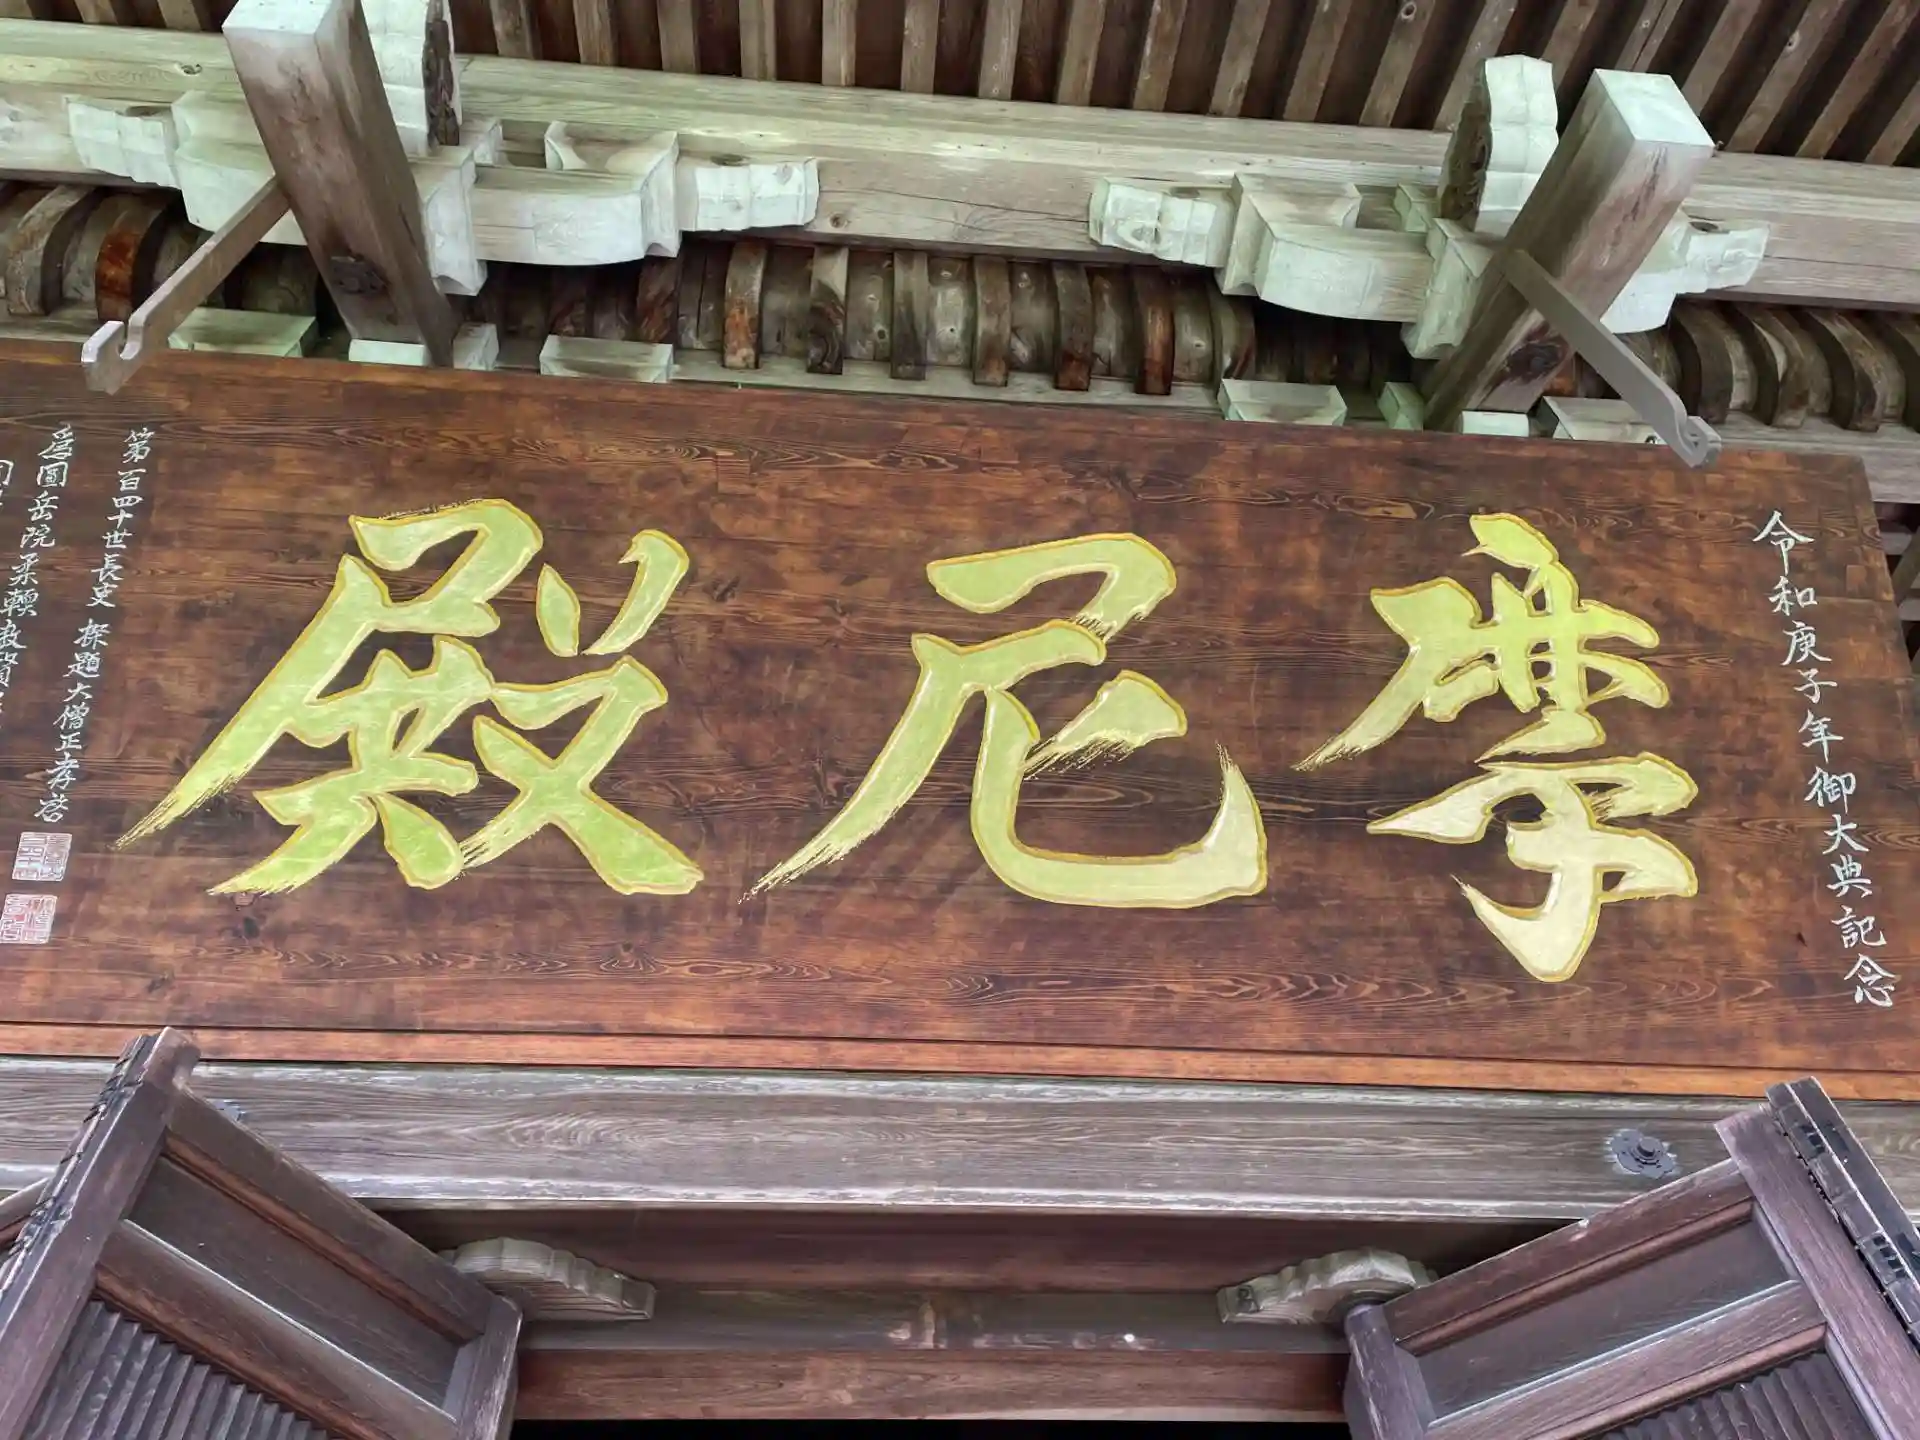 摩尼殿
令和庚子年御大典記念
第百四十世長吏 探題大僧正孝啓
為圓岳院柔轉